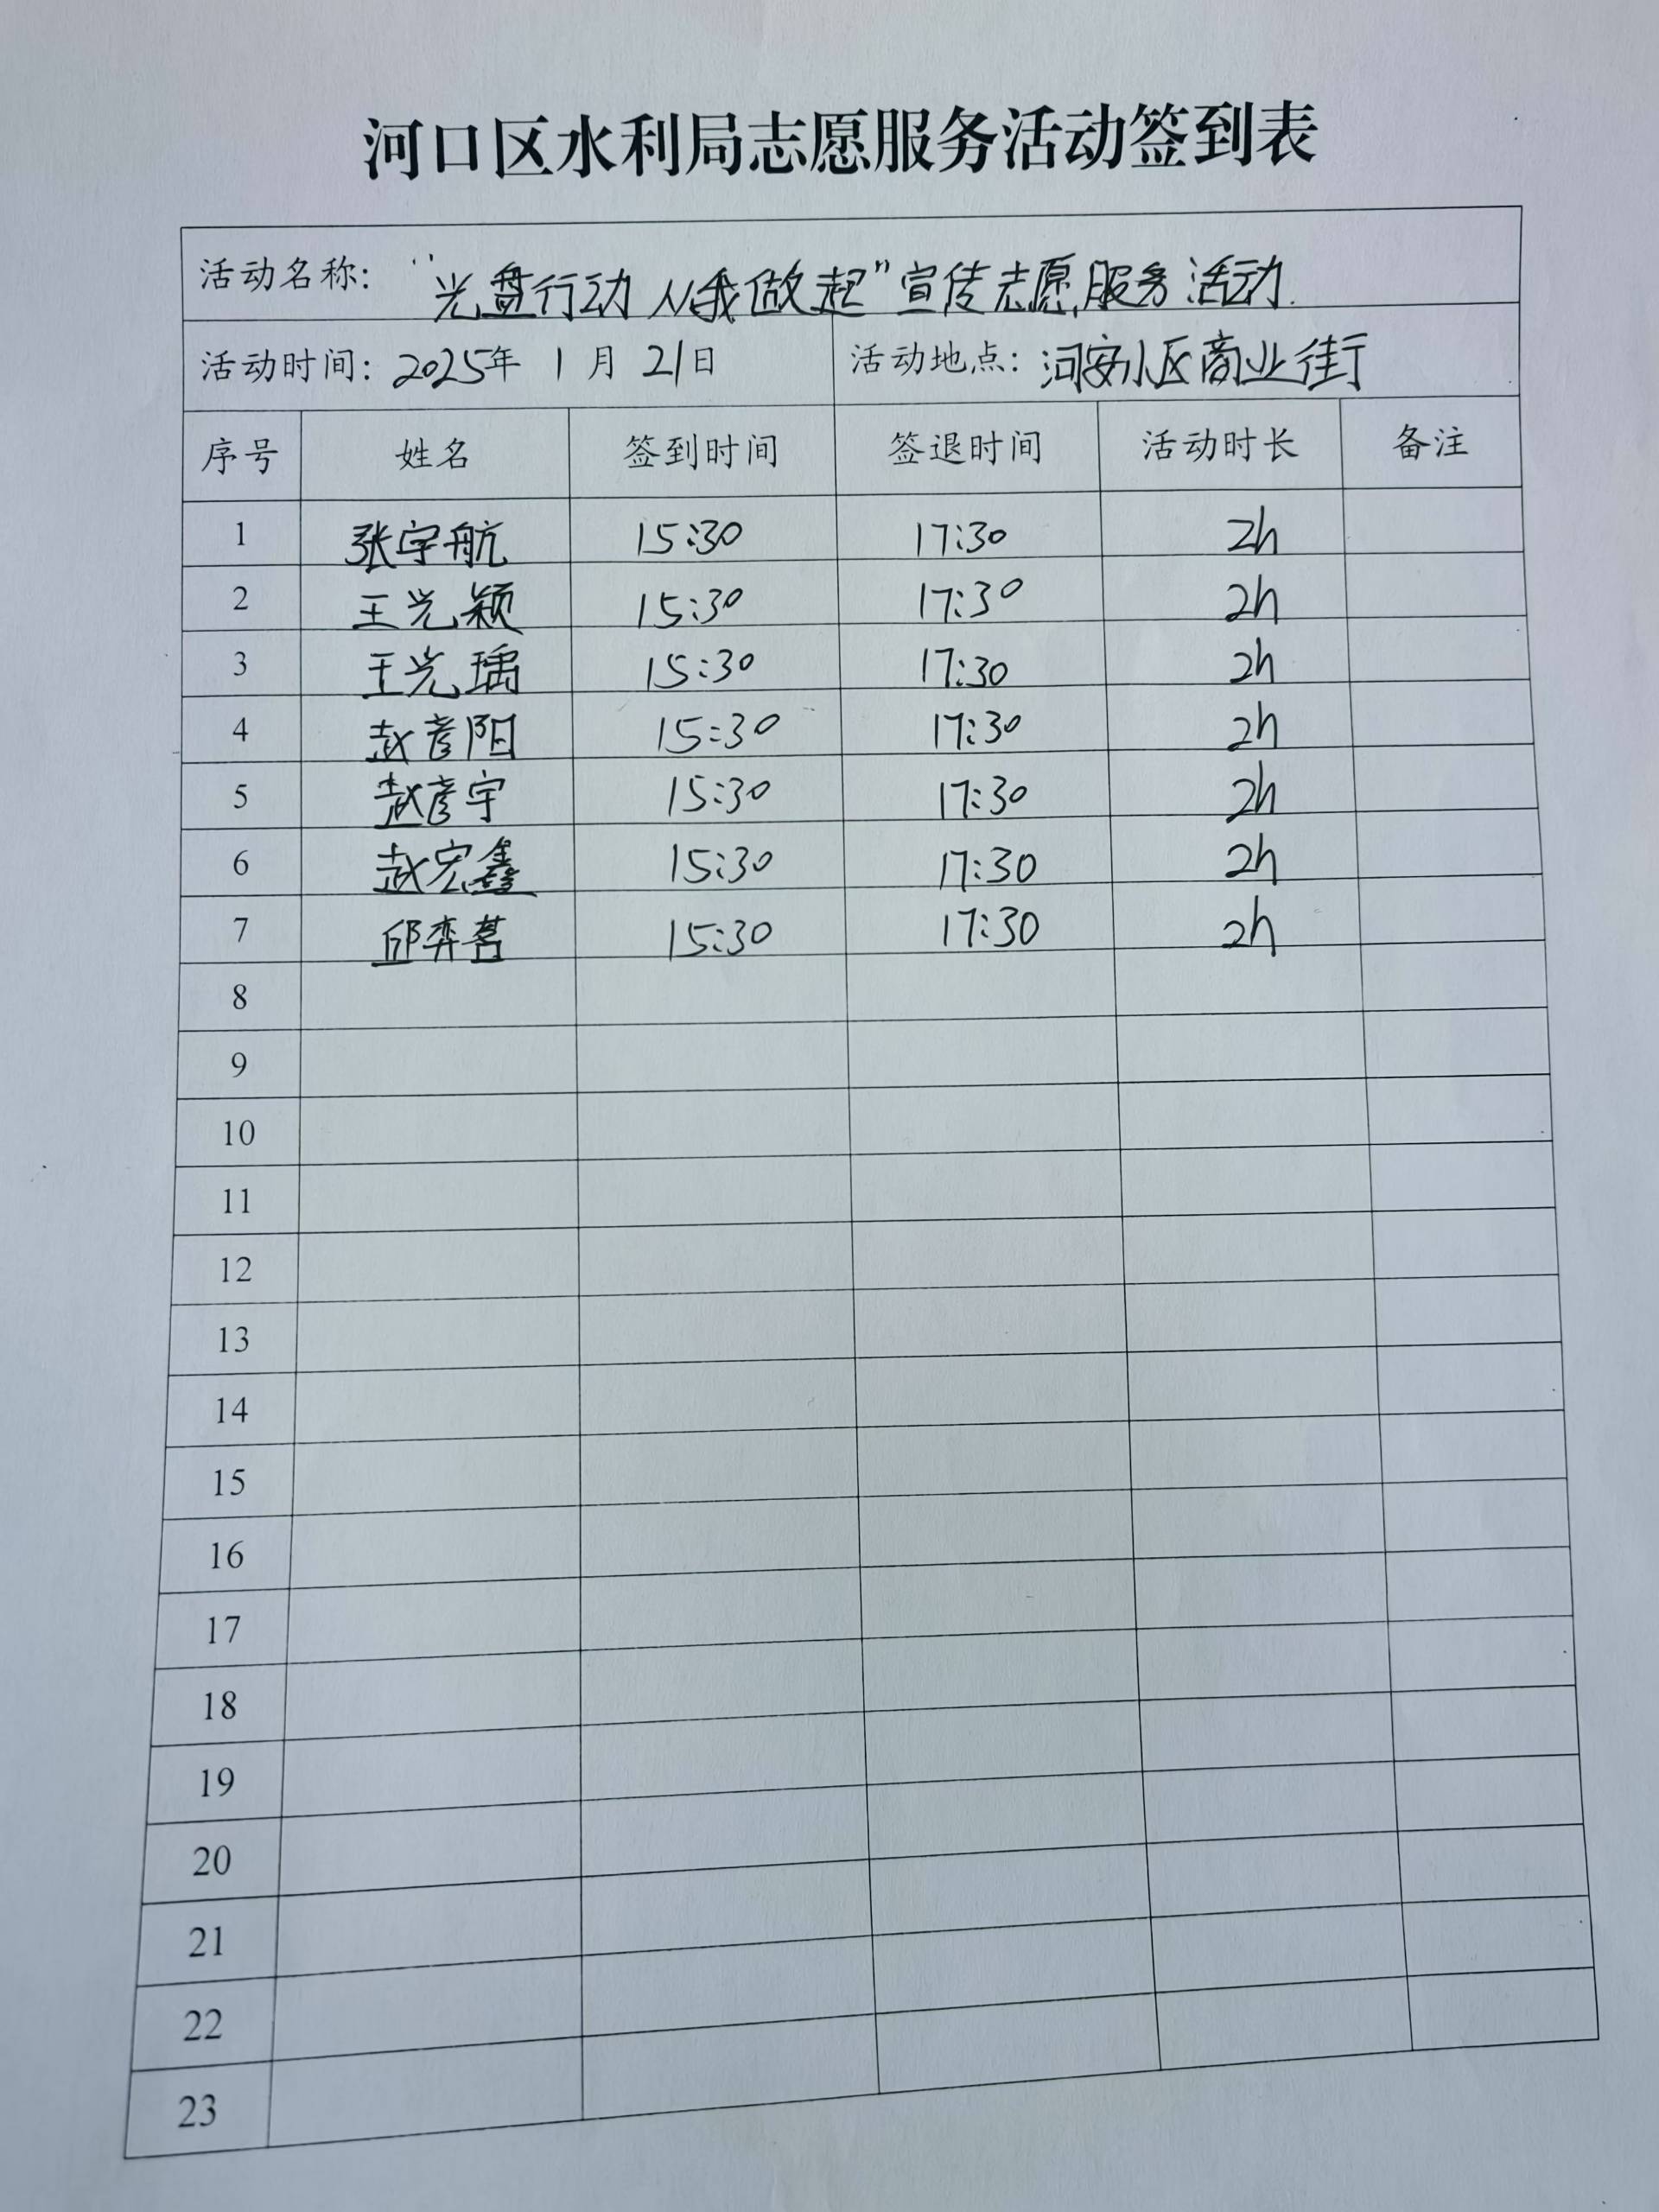 河口区水利局志愿服务活动签到表
活动名称: “光盘行动 从我做起”宣传志愿服务活动.
活动时间: 2025年 1 月 21日 活动地点: 河安小区商业街
序号 姓名 签到时间 签退时间 活动时长 备注
1 张宇航 15:30 17:30 2h
2 王光颖 15:30 17:30 2h
3 王光瑀 15:30 17:30 2h
4 赵彦阳 15:30 17:30 2h
5 赵彦宇 15:30 17:30 2h
6 赵宏鑫 15:30 17:30 2h
7 邱弈茗 15:30 17:30 2h
8
9
10
11
12
13
14
15
16
17
18
19
20
21
22
23